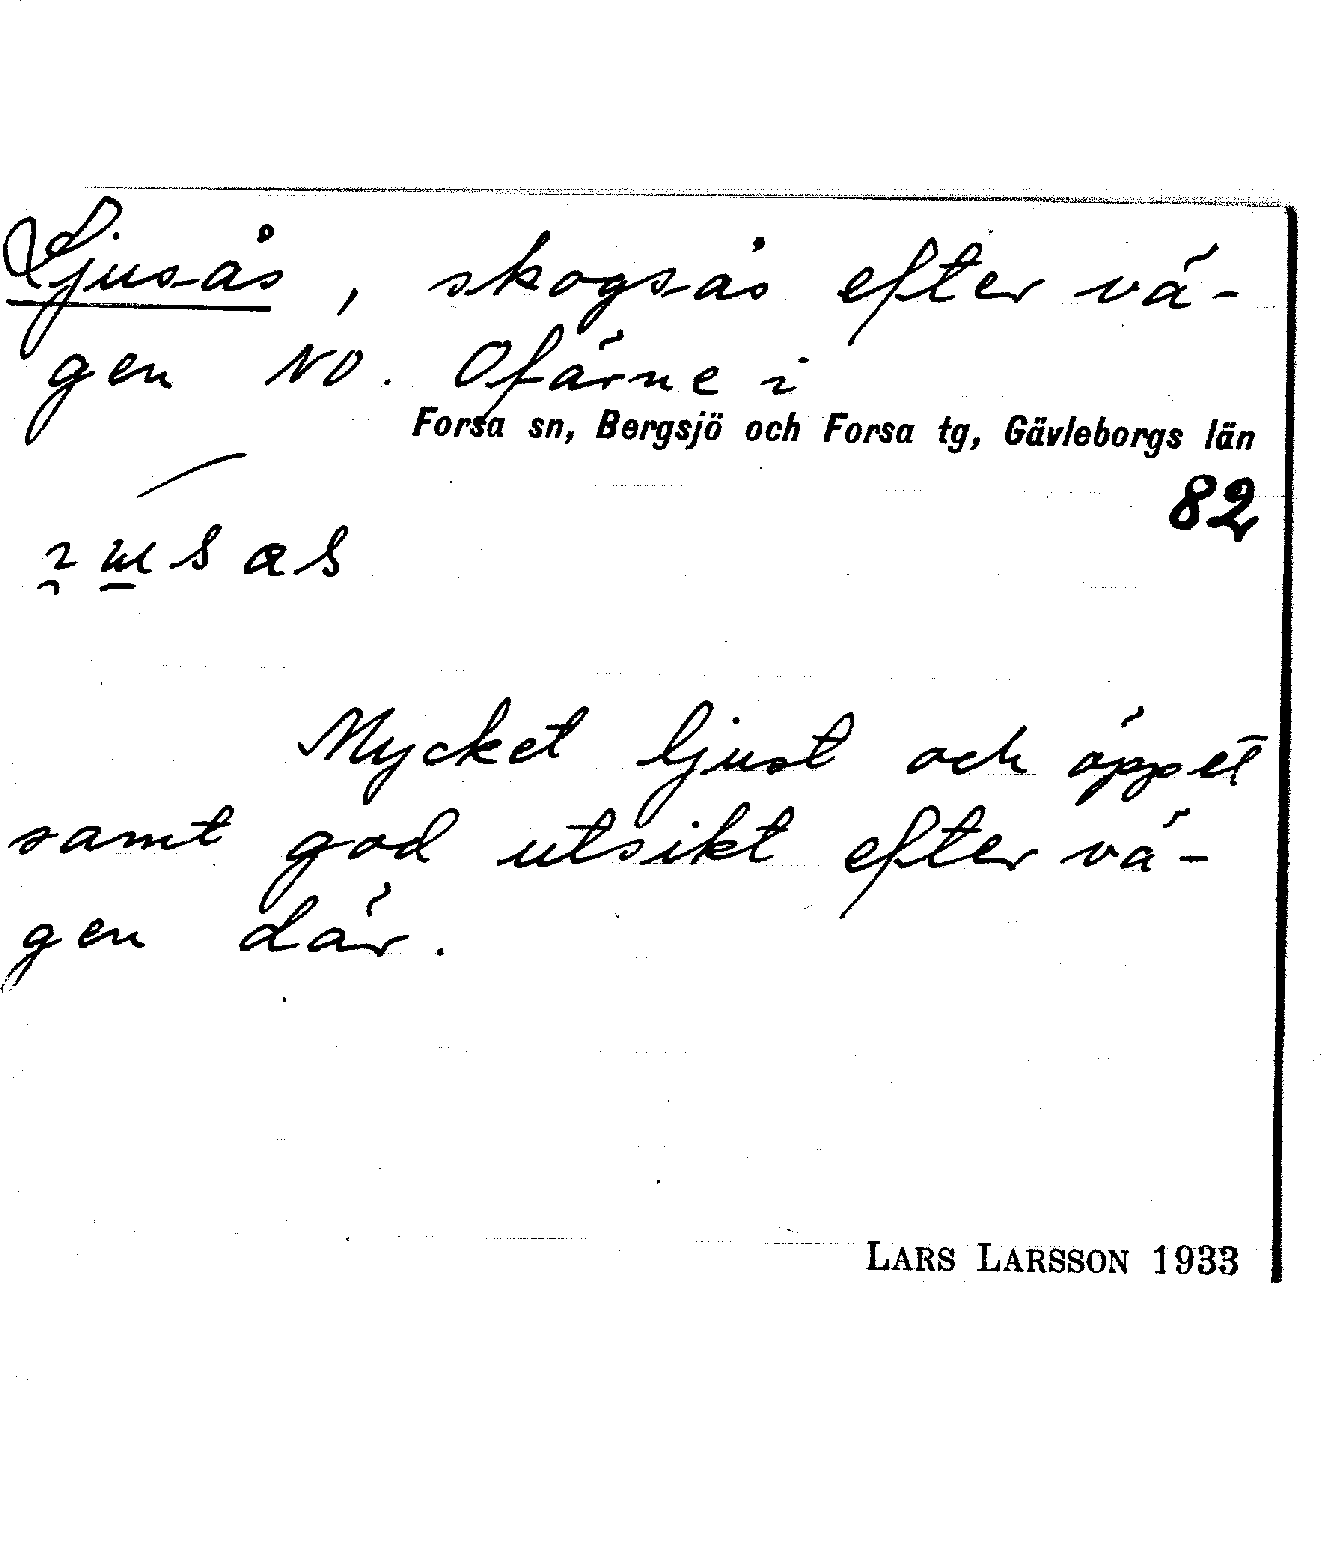 Ljusås, skogsås efter vä-
gen NO. Ofärne i
Forsa sn, Bergsjö och Forsa tg, Gävleborgs län
82
Mycket ljust och öppet
samt god utsikt efter vä-
gen där.
LARS LARSSON 1933